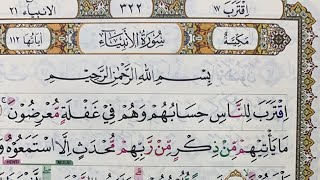 اِقْتَرَبَ ١٧
٣٢٢
الانبياء ٢١
مَكِّيَّة
سُورَةُ الْأَنْبِيَاء
آياتها ١١٢
بِسْمِ اللهِ الرَّحْمٰنِ الرَّحِيمِ
اِقْتَرَبَ لِلنَّاسِ حِسَابُهُمْ وَهُمْ فِي غَفْلَةٍ مُعْرِضُونَ
مَا يَأْتِيهِمْ مِنْ ذِكْرٍ مِنْ رَبِّهِمْ مُحْدَثٍ إِلَّا اسْتَمَعُوهُ وَ